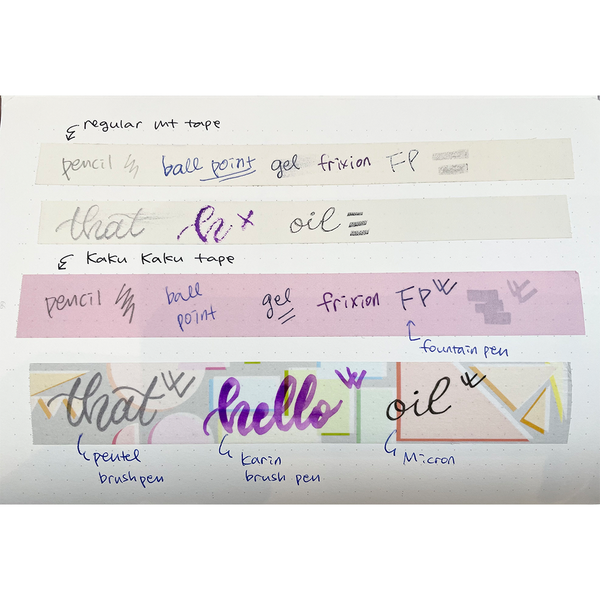 regular mt tape
pencil ball point gel frixion FP
that h x oil
Kaku Kaku tape
pencil ball point gel frixion FP
fountain pen
that hello oil
pentel brushpen
Karin brush pen
Micron